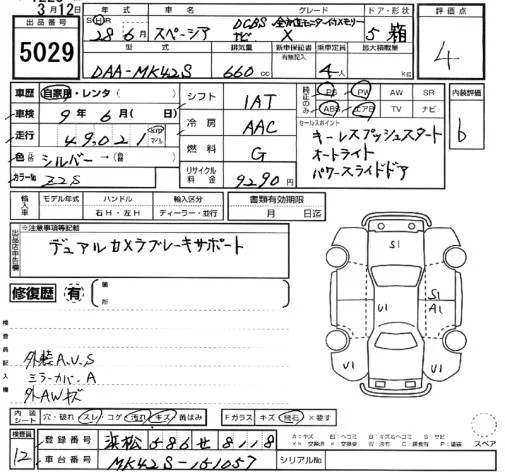 3月12日
出品番号
5029
年式 車名 グレード ドア・形状 評価点
S H 28年6月 スペーシア DCBS 全方位モニター付メモリー
ナビ X 5 箱 4
型式 排気量 新車保証書 乗車定員 最大積載量
有無記入
DAA-MK42S 660cc 4人 kg
車歴 自家用・レンタ( ) シフト 1AT
純正のみ PS PW AW SR 内装評価
ABS エアB TV ナビ b
車検 9年6月( 日) 冷房 AAC
セールスポイント
キーレスプッシュスタート
オートライト
パワースライドドア
走行 49,021 km マイル 燃料 G
色 シルバー → ( )
リサイクル料金 9290円
カラーNo. Z2S
輸入車 モデル年式 ハンドル 輸入区分 書類有効期限
右H・左H ディーラー・並行 月 日迄
出品店申告欄 ※注意事項等記載
デュアルカメラブレーキサポート
修復歴 有 箇所
検査員記入欄
外装A.U.S
ミラーカバーA
外AWキズ
S1
S1
A1
U1
U1
U1
内装シート 穴・破れ スレ コゲ 汚れ キズ 黄ばみ Fガラス キズ 飛石 ×要す
スペア
検査員 12
登録番号 浜松 586 せ 8118
車台番号 MK42S-151057 シリアルNo.